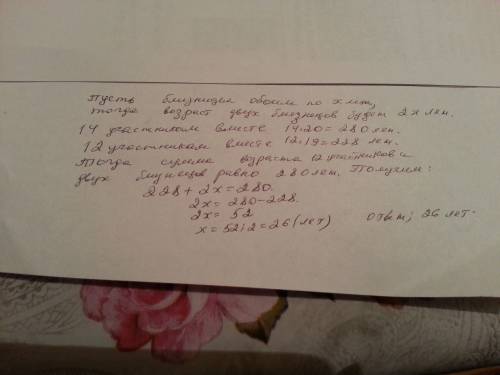 Пусть близнецам обоим по х лет,
тогда возраст двух близнецов будет 2х лет.
14 участникам вместе 14·20=280 лет.
12 участникам вместе 12·19=228 лет.
Тогда сумма возраста 12 участников и
двух близнецов равно 280 лет. Получим:
228+2х=280.
2х=280-228.
2х=52
х=52:2=26(лет) ответ; 26 лет.